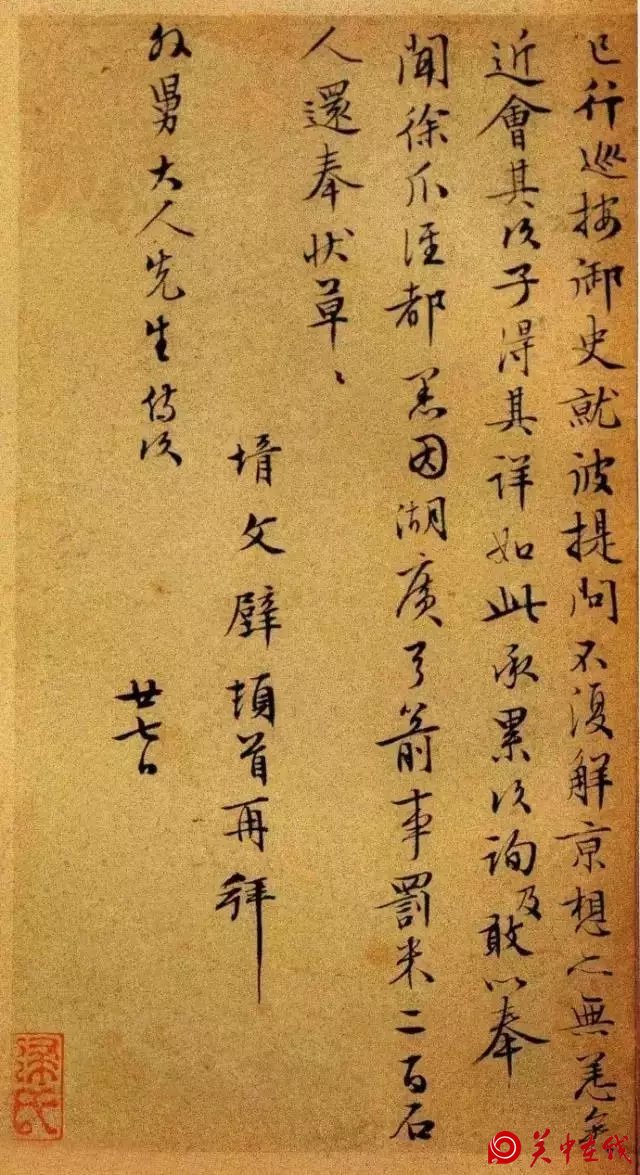 已行巡按御史就彼提問不復解京想亦無恙矣
近會其次子得其詳如此承累次詢及敢以奉
聞徐爪涇都恙因湖廣弓箭事罰米二百石
人還奉狀草〻
壻文壁頓首再拜
外舅大人先生侍次
廿七日
梁氏
关中在线